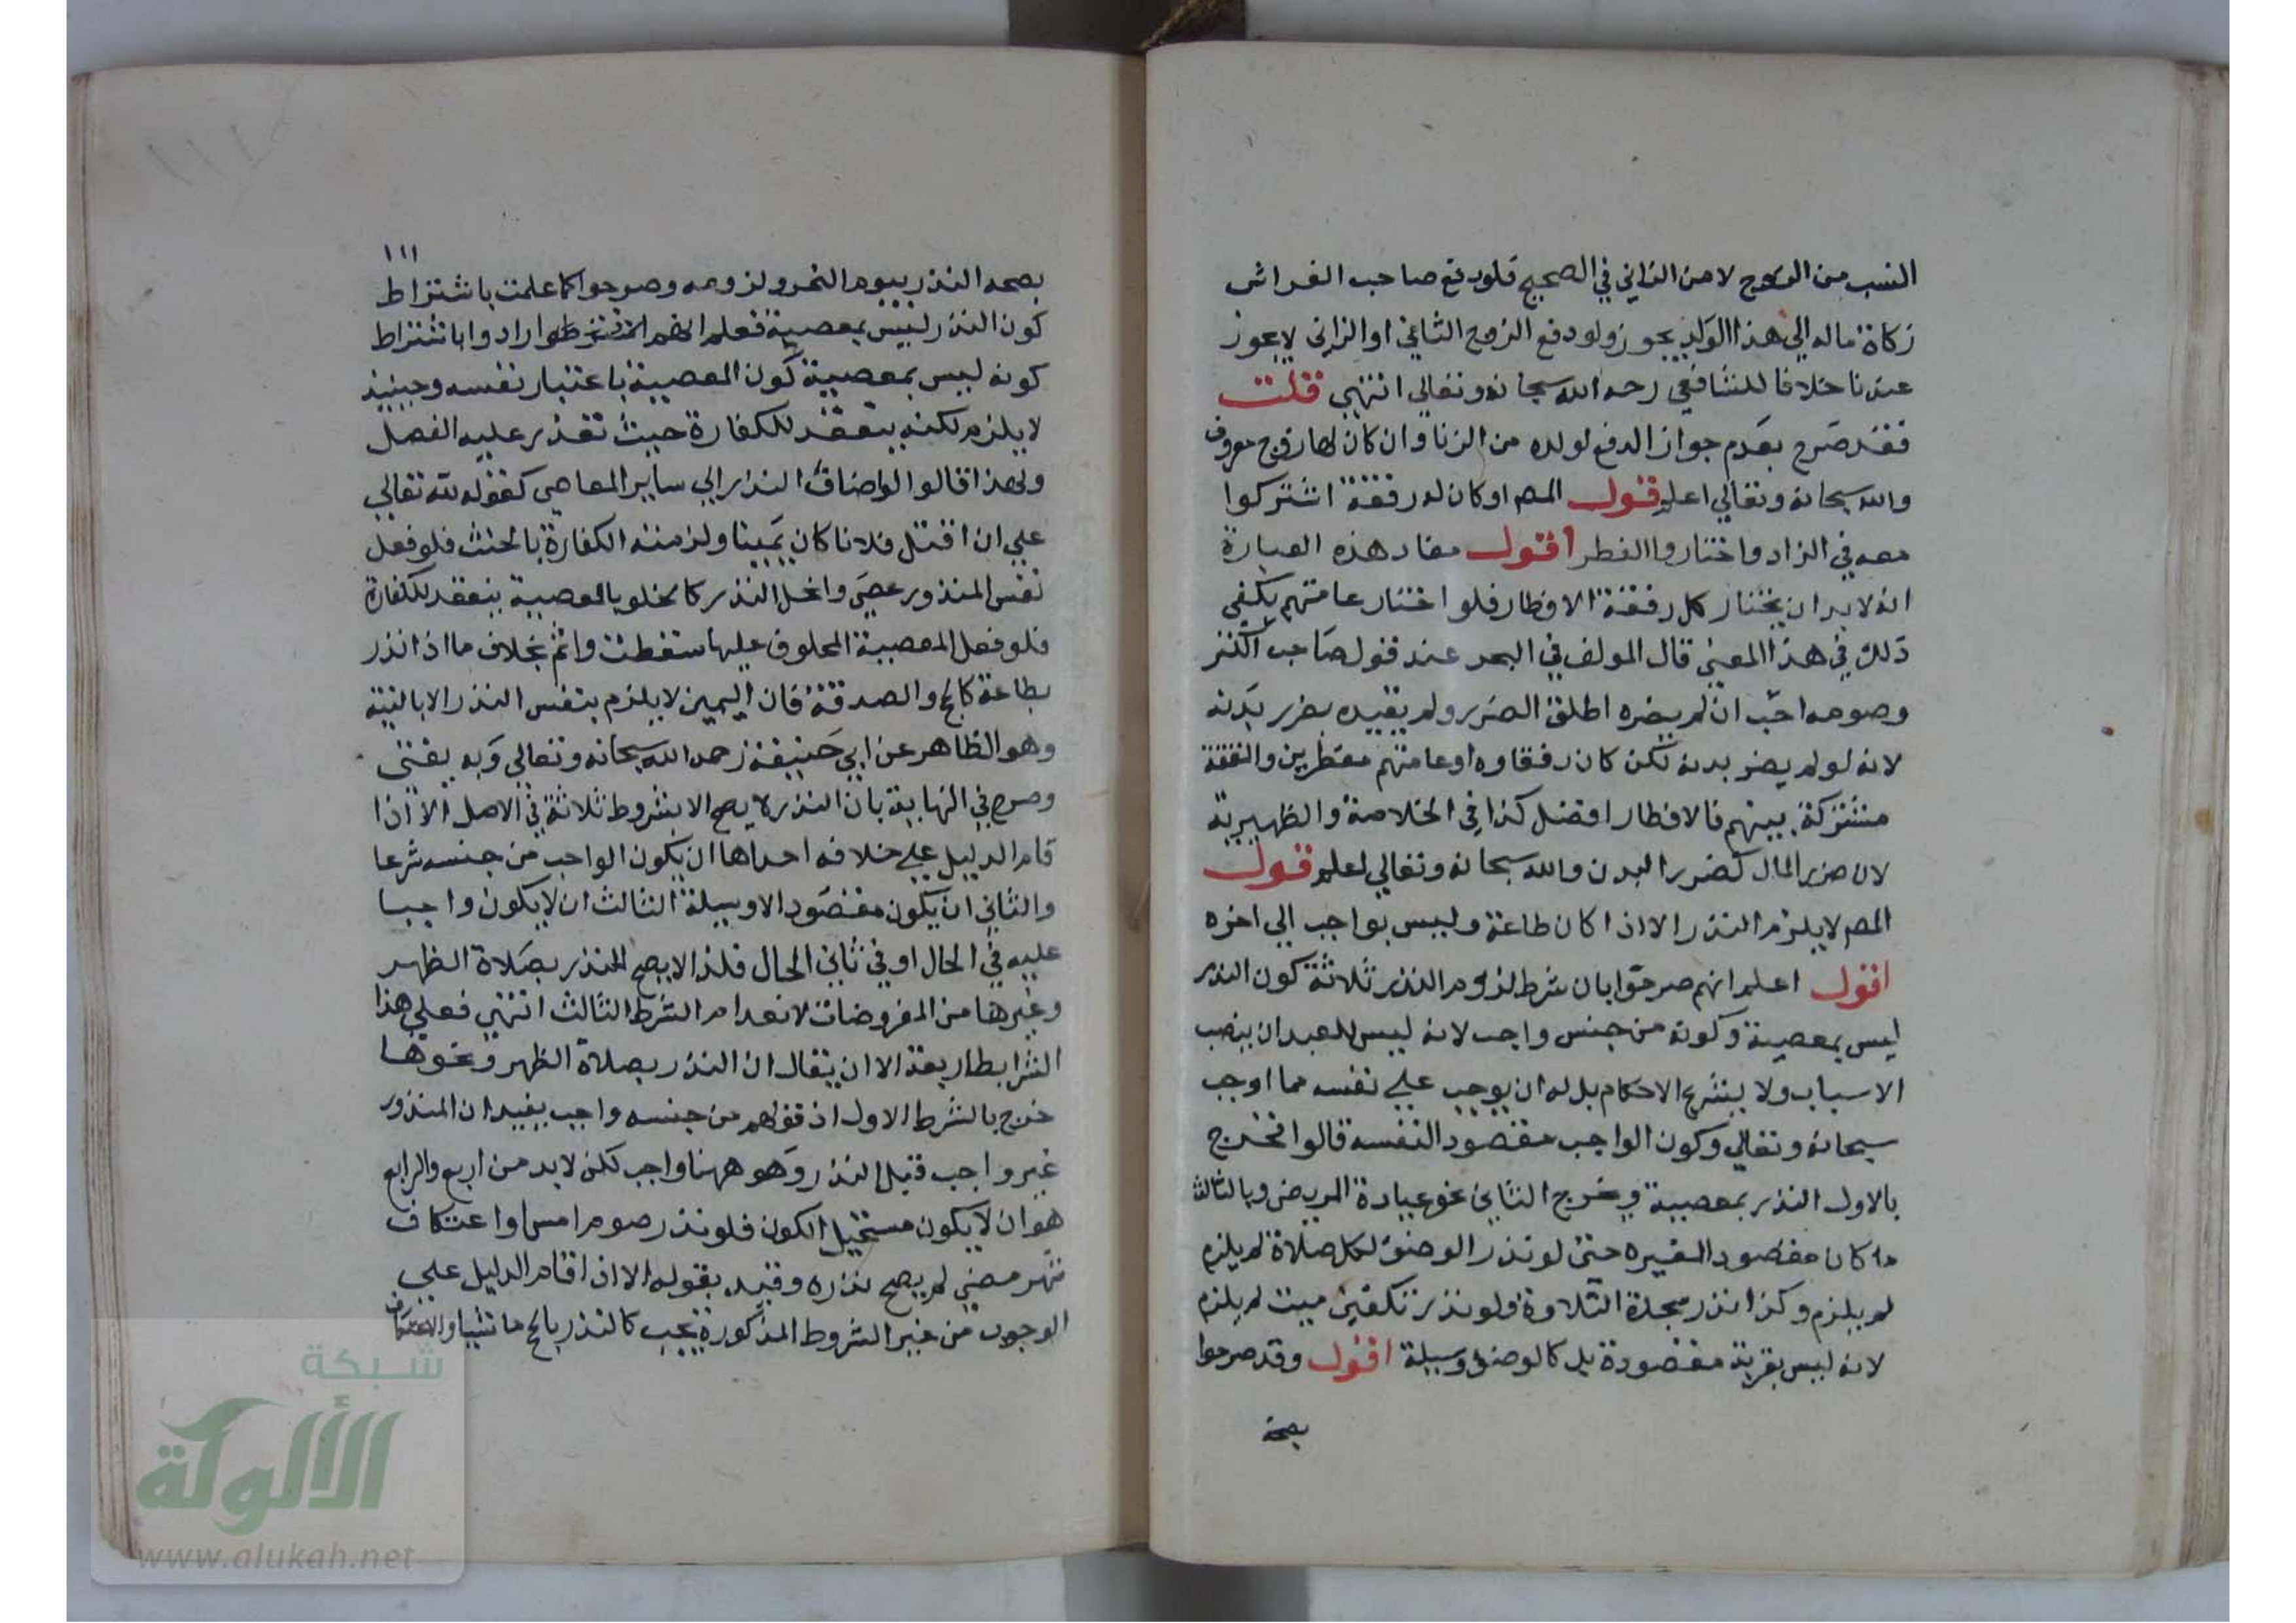 النسب من الزوج لا من الزاني في الصحيح فلو دفع صاحب الفراش
زكاة ماله الي هذا الولد يجوز ولو دفع الزوج الثاني او الزاني لا يجوز
عندنا خلافا للشافعي رحمه الله سبحانه وتعالي انتهي قلت
فقد صرح بعدم جواز الدفع لولده من الزنا وان كان لها زوج معروف
والله سبحانه وتعالي اعلم قول المص او كان له رفقة اشتركوا
معه في الزاد واختاروا الفطر اقول مفاد هذه العبارة
انه لا بد ان يختار كل رفقة الافطار فلو اختار عامتهم يكفي
ذلك في هذا المعني قال المولف في البحر عند قول صاحب الكنز
وصومه احب ان لم يضره اطلق الضرر ولم يقيده بضرر بدنه
لانه لو لم يضر بدنه لكن كان رفقاوه او عامتهم مفطرين والنفقة
مشتركة بينهم فالافطار افضل كذا في الخلاصة والظهيرية
لان ضرر المال كضرر البدن والله سبحانه وتعالي اعلم قول
المص لا يلزم النذر الا اذا كان طاعة وليس بواجب الي اخره
اقول اعلم انهم صرحوا بان شرط لزوم النذر ثلاثة كون النذر
ليس بمعصية وكونه من جنس واجب لانه ليس للعبد ان ينصب
الاسباب ولا يشرع الاحكام بل له ان يوجب علي نفسه مما اوجب
سبحانه وتعالي وكون الواجب مقصود النفسه قالوا فخرج
بالاول النذر بمعصية وخرج الثاني نحو عيادة المريض وبالثالث
ما كان مقصود الغيره حتى لو نذر الوضوء لكل صلاة لم يلزم
لم يلزم وكذا نذر سجدة التلاوة ولو نذر تكفين ميت لم يلزم
لانه ليس بقربة مقصودة بل كالوضوء وسيلة اقول وقد صرحوا
بصحة
١١١
بصحه النذر بيوم النحر ولزومه وصرحوا كما علمت باشتراط
كون النذر ليس بمعصية فعلم انهم ارادوا باشتراط
كونه ليس بمعصية كون المعصية باعتبار نفسه وحينيذ
لا يلزم لكنه ينعقد للكفارة حيث تعذر عليه الفصل
ولهذا قالوا لو اضاف النذر الي ساير المعاصي كقوله لله تعالي
علي ان اقتل فلانا كان يمينا ولزمته الكفارة بالحنث فلو فعل
نفس المنذور عصي وانحل النذر كالحلف بالمعصية ينعقد للكفارة
فلو فعل المعصية المحلوف عليها سقطت واثم بخلاف ما اذا نذر
بطاعة كالحج والصدقة فان اليمين لا يلزم بنفس النذر الا بالنية
وهو الظاهر عن ابي حنيفة رحمه الله سبحانه وتعالي وبه يفتي
وصرح في النهاية بان النذر لا يصح الا بشروط ثلاثة في الاصل الا اذا
قام الدليل علي خلافه احداها ان يكون الواجب من جنسه شرعا
والثاني ان يكون مقصود الا وسيلة الثالث ان لا يكون واجبا
عليه في الحال او في ثاني الحال فلذا لا يصح النذر بصلاة الظهر
وغيرها من المفروضات لانعدام الشرط الثالث انتهي فعلي هذا
الشرايط اربعة الا ان يقال ان النذر بصلاة الظهر ونحوها
خرج بالشرط الاول اذ قولهم من جنسه واجب يفيد ان المنذور
غير واجب قبل النذر وهو ههنا واجب لكن لا بد من اربع والرابع
هو ان لا يكون مستحيل الكون فلو نذر صوم امس او اعتكاف
شهر مضي لم يصح نذره وقيد بقوله الا اذا قام الدليل علي
الوجوب من غير الشروط المذكورة يجب كالنذر بالحج ماشيا والاعتكاف
شبكة
الألوكة
www.alukah.net